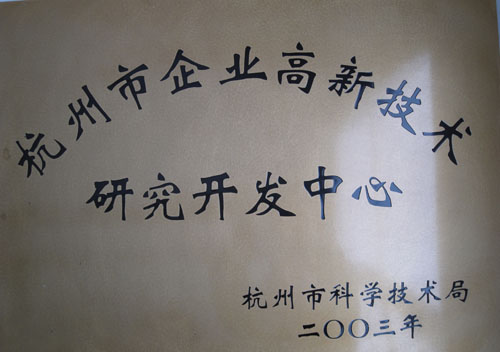 杭州市企业高新技术
研究开发中心
杭州市科学技术局
二〇〇三年